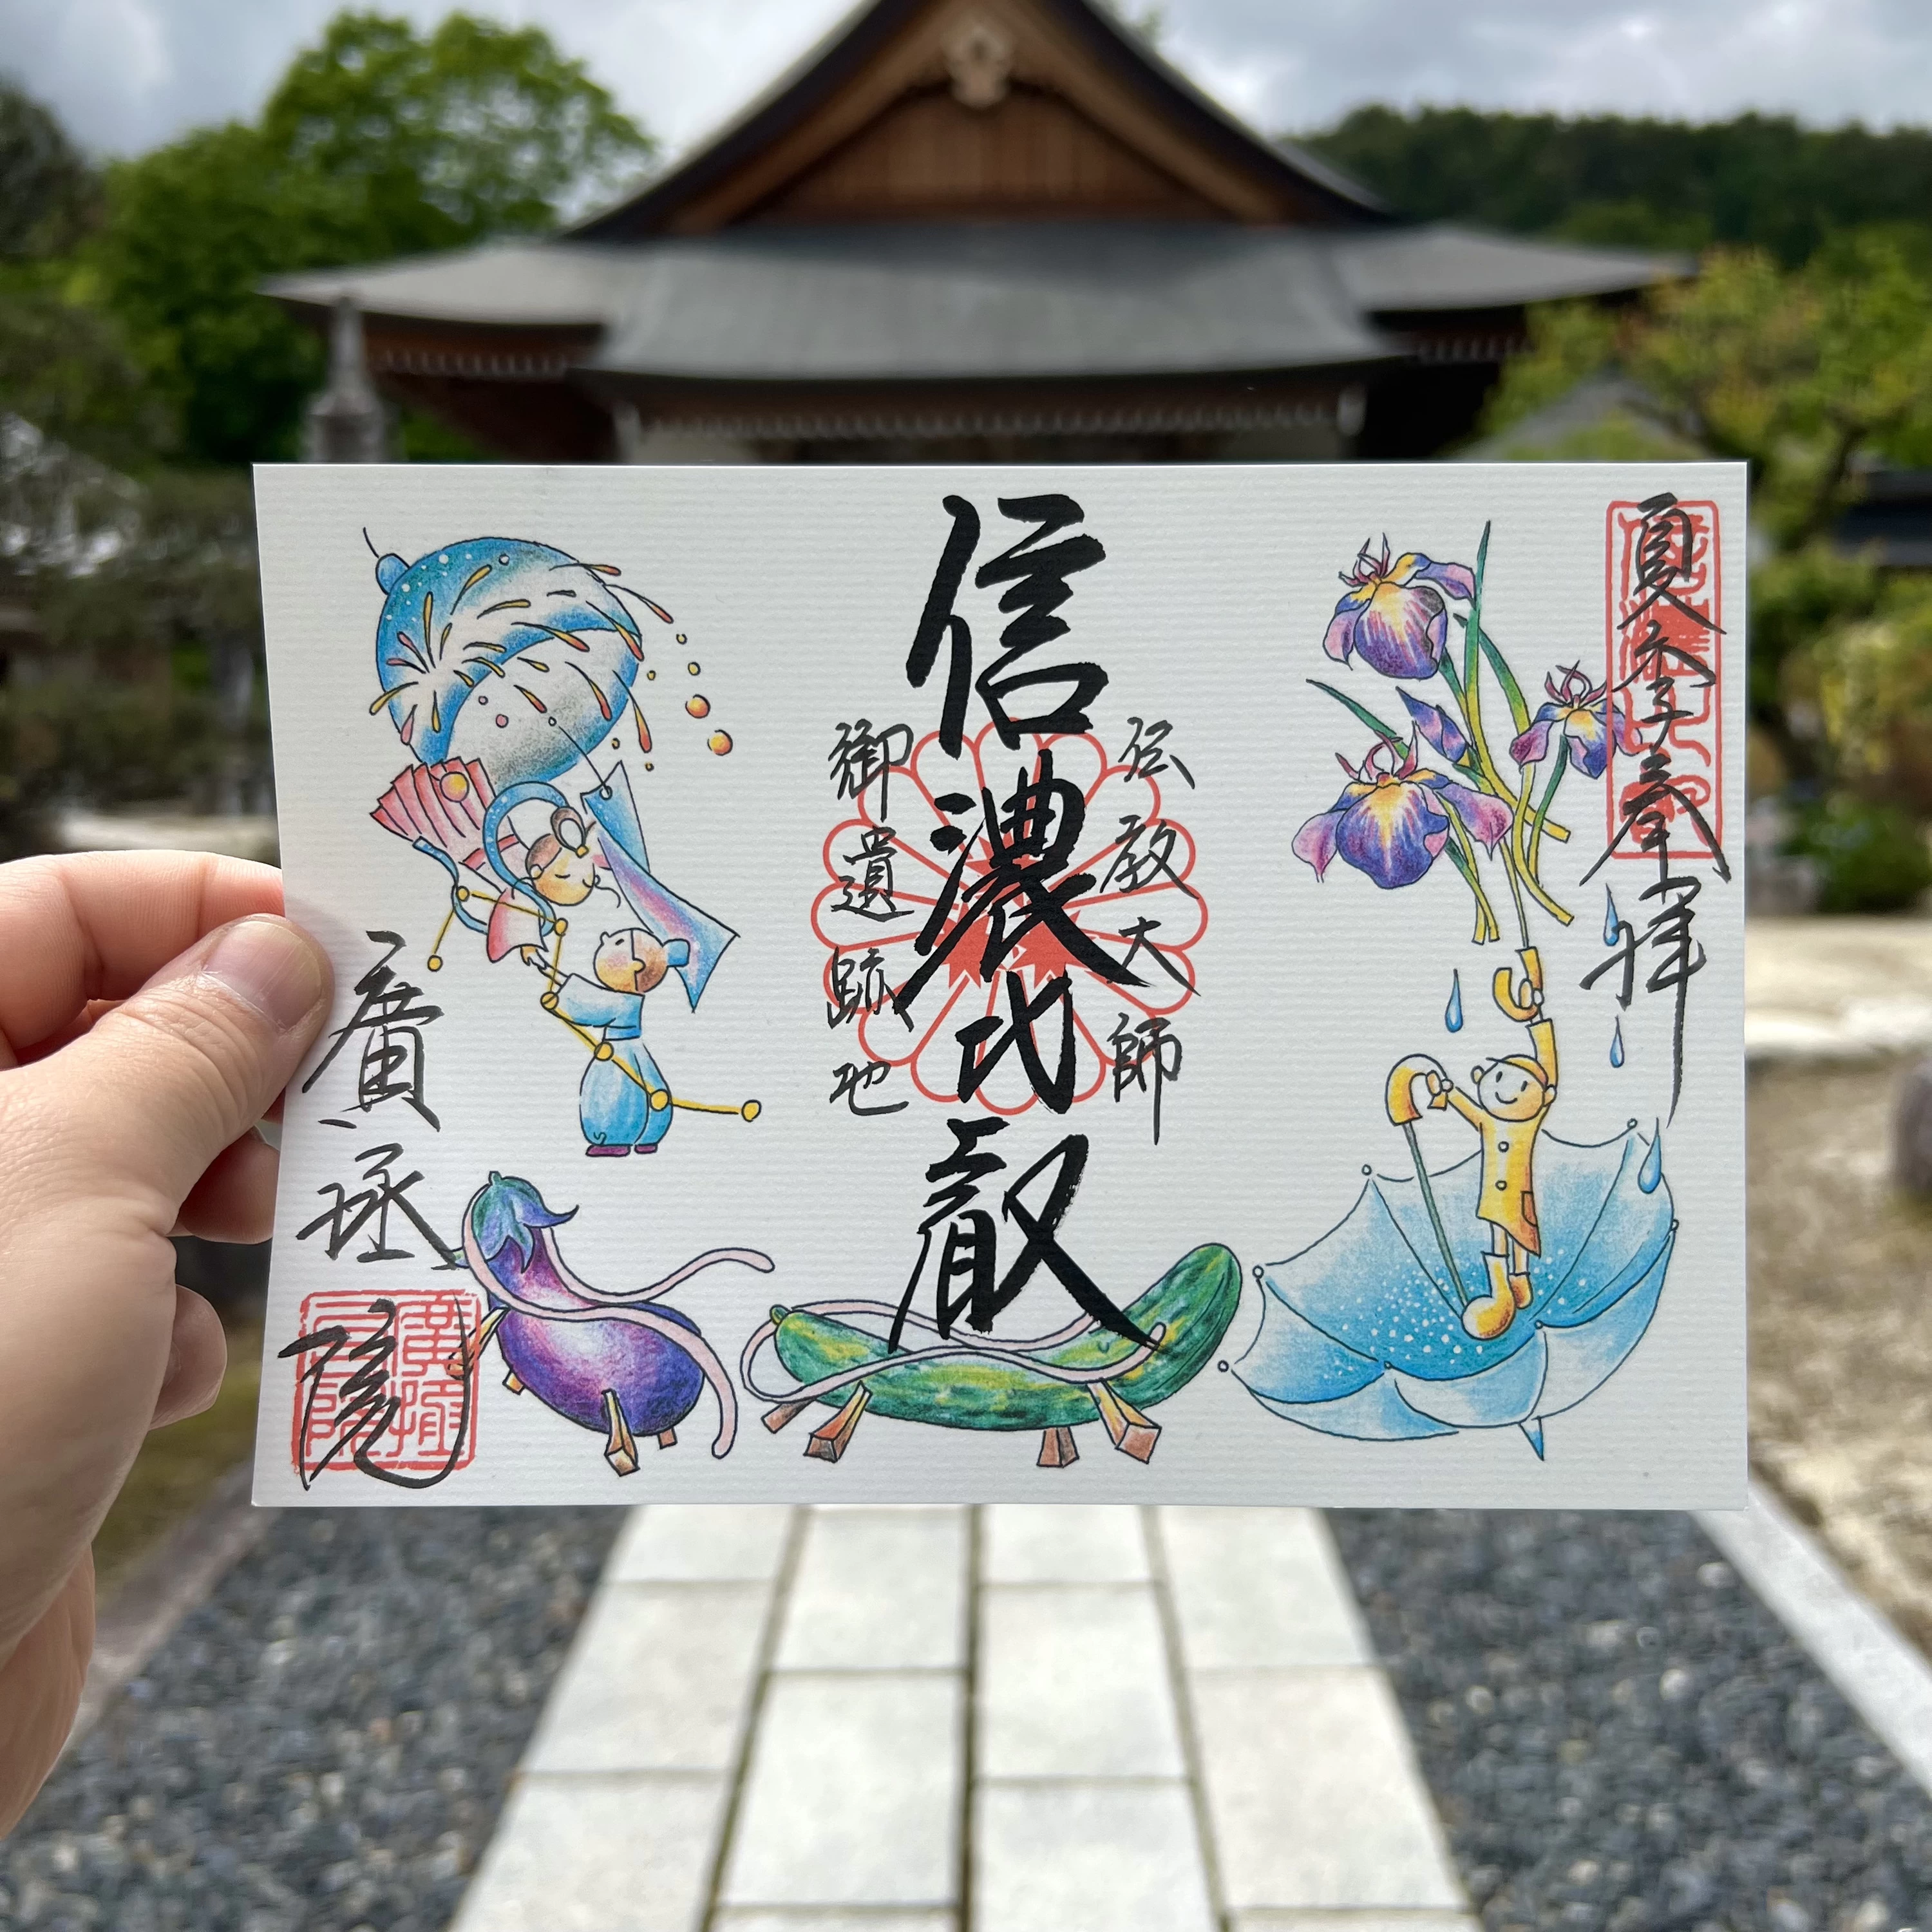 夏季奉拝
伝教大師
信濃比叡
御遺跡地
廣拯院